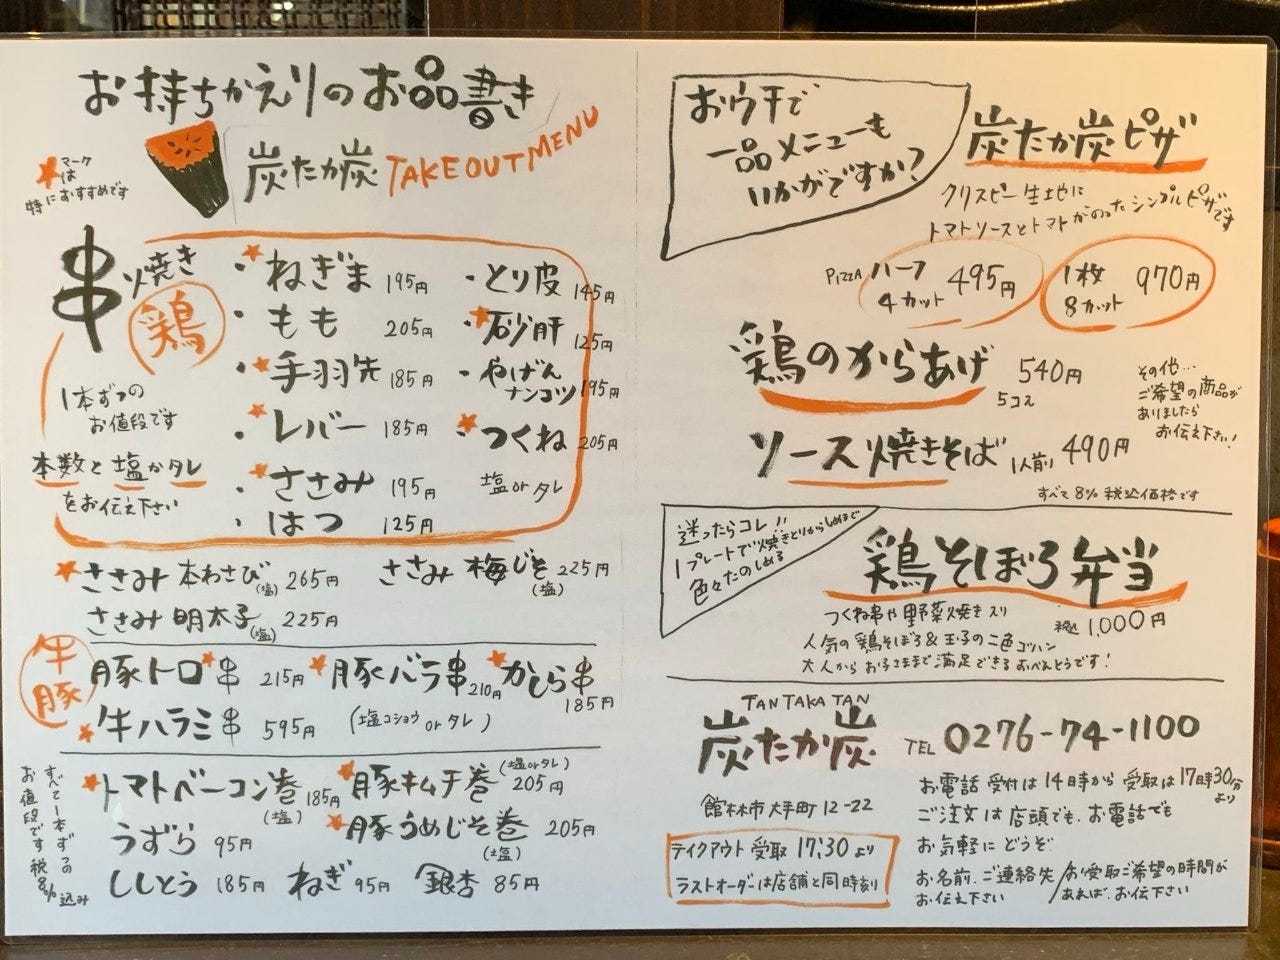 お持ちかえりのお品書き
★マークは
特におすすめです
炭たか炭 TAKEOUT MENU
串焼き
鶏
1本ずつの
お値段です
本数と塩かタレ
をお伝え下さい
・★ねぎま 195円
・もも 205円
・★手羽先 185円
・★レバー 185円
・★ささみ 195円
・はつ 125円
・とり皮 145円
・★砂肝 125円
・やげん
ナンコツ 195円
・★つくね 205円
塩orタレ
★ささみ本わさび(塩) 265円 ささみ梅じそ(塩) 225円
ささみ明太子(塩) 225円
牛
豚
豚トロ★串 215円 ★豚バラ串 210円 ★かしら串
185円
★牛ハラミ串 595円 (塩コショウorタレ)
すべて1本ずつの
お値段です 税8%込み
★トマトベーコン巻 185円 (塩) ★豚キムチ巻 (塩orタレ) 205円
うずら 95円 ★豚うめじそ巻 (塩) 205円
ししとう 185円 ねぎ 95円 銀杏 85円
おウチで
一品メニューも
いかがですか?
炭たか炭ピザ
クリスピー生地に
トマトソースとトマトがのったシンプルピザです
PIZZA ハーフ 4カット 495円 1枚 8カット 970円
鶏のからあげ 5コ入 540円
ソース焼きそば 1人前 490円
その他…
ご希望の商品が
ありましたら
お伝え下さい!
すべて8%税込価格です
迷ったらコレ!!
1プレートで焼きとりからしめまで
色々たのしめる
鶏そぼろ弁当
つくね串や野菜焼き入り 税込 1,000円
人気の鶏そぼろ&玉子の二色ゴハン
大人からお子さままで満足できるおべんとうです!
TAN TAKA TAN
炭たか炭 TEL 0276-74-1100
館林市大手町12-22
テイクアウト受取 17:30より
ラストオーダーは店舗と同時刻
お電話受付は14時から受取は17時30分より
ご注文は店頭でも、お電話でも
お気軽にどうぞ
お名前、ご連絡先/お受取ご希望の時間が
お伝え下さい あれば、お伝下さい